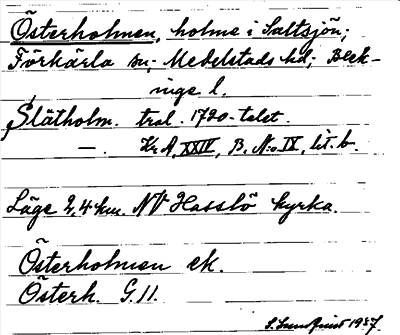 Österholmen, holme i Saltsjön;
Förkärla sn; Medelstads hd; Blek-
inge l.
Slätholm. tral. 1720-talet.
—. Kr A, XXIV, B. N:o IX, lit. b.
Läge 2,4 km. NV Hasslö kyrka.
Österholmen ek.
Österh. G. 11.
S. Sundquist 1937.